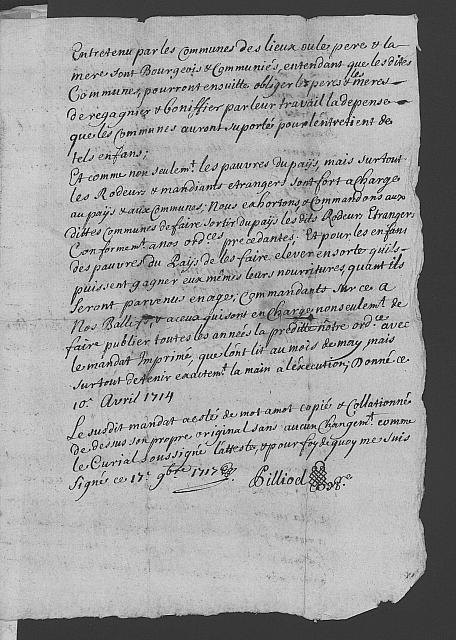 Entretenu par les Communes des lieux ou le pere & la
mere sont Bourgeois & Communiés, entendant que les dites
Communes, pourront ensuitte obliger les peres & les meres
de regagnier & boniffier par leur travail la depense
que les Communes auront suporté pour l'entretient de
tels enfans;
Et comme non seulemt. les pauvres du païs, mais surtout
les Rodeurs & mandiants etrangers sont fort a charge
au païs & aux Communes. Nous exhortons & Commandons aux
dittes Communes de faire sortir du païs les dits Rodeurs Etrangers
Conformemt. a nos ordces precedantes. Et pour les enfans
des pauvres du Païs de les faire elever en sorte qu'ils
puissent gagner eux mêmes leurs nourritures, quant ils
seront parvenus en age, Commandants sur ce a
Nos Ballifs, & a ceux qui sont en Charge non seulemt. de
faire publier toutes les années la preditte nôtre ordce. avec
le mandat Imprimé, que l'ont lit au mois de may, mais
surtout de tenir exactemt. la main a l'éxécution; Donné ce
10e. Avril 1714
Le susdit mandat a esté de mot a mot copié & Collationné
de dessus son propre original sans aucun changemt. comme
le Curial soussigné l'atteste, & pour foy de quoy me suis
signé ce 17e. 9bre 1717
Pilliod